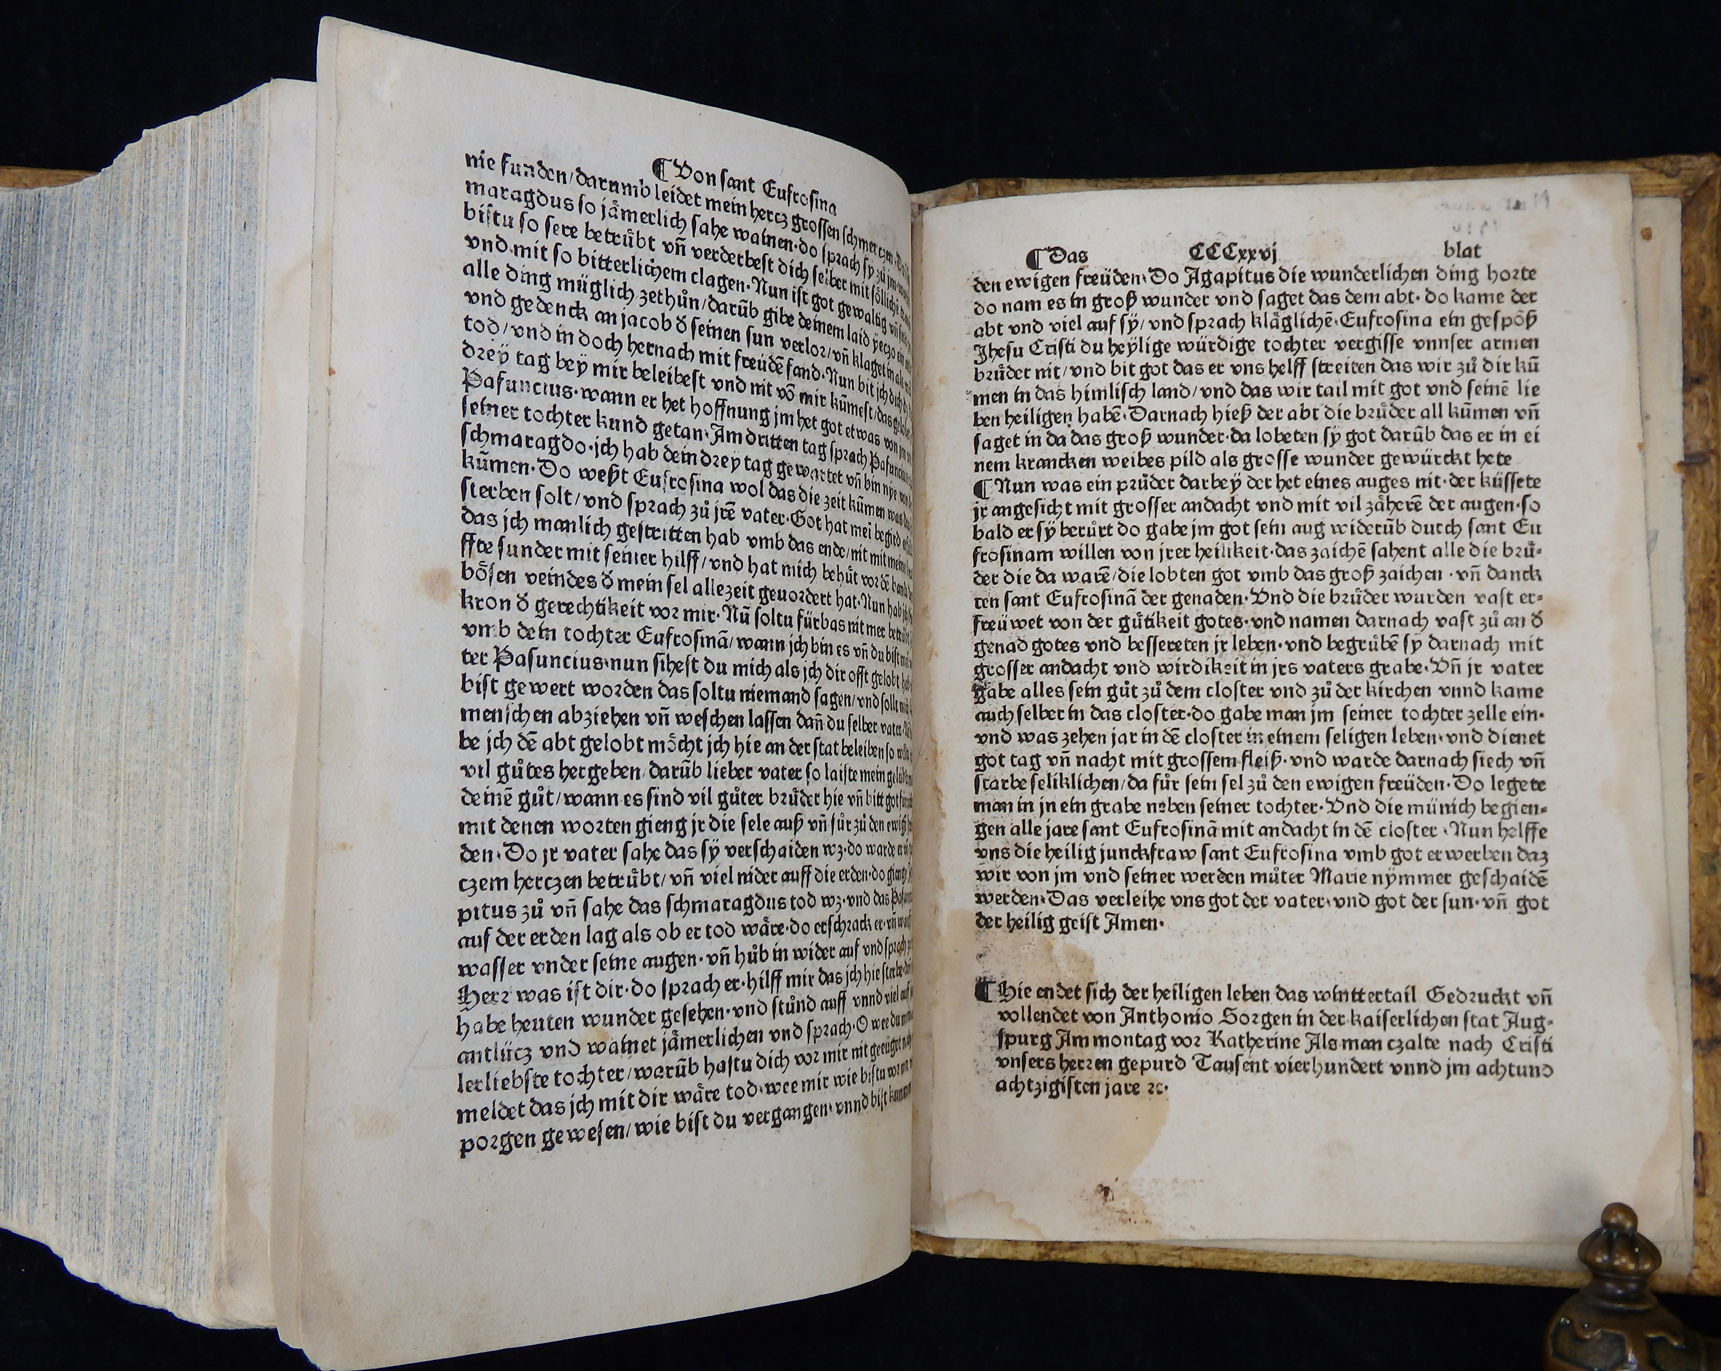 ¶ Von sant Eufrosina
nie funden/darumb leidet mein hercz grossen schmerczen
maragdus so jämerlich sahe wainen·do sprach sy zů jm
bistu so sere betrůbt vñ verderbest dich selber mit
vnd mit so bitterlichem clagen·Nun ist got gewaltig vñ
alle ding müglich zethůn/darüb gibe deinem laid yeczo
vnd gedenck an jacob ď seinen sun verlor/vñ klaget in
tod/vnd in doch hernach mit freüdē fand·Nun bit jch dich
drey tag bey mir beleibest vnd nit vō mir kümest/das
Pafuncius·wann er het hoffnung jm het got etwas von
seiner tochter kund getan·Am dritten tag sprach Pafuncius
schmaragdo·jch hab dein drey tag gewartet vñ bin nye
kümen·Do weßt Eufrosina wol das die zeit kümen was
sterben solt/vnd sprach zů jrē vater·Got hat mei begird
das jch manlich gestritten hab vmb das ende/nit mit
ffte sunder mit seiner hilff/vnd hat mich behůt vor dē
bösen veindes ď mein sel allezeit geuordert hat·Nun hab
kron ď gerechtikeit vor mir·Nū soltu fürbas nit mer
vmb dein tochter Eufrosinā/wann jch bin es vñ du bist
ter Pafuncius·nun sihest du mich als jch dir offt gelobt
bist gewert worden das soltu niemand sagen/vnd
menschen abziehen vñ weschen lassen dañ du selber vater
be jch dē abt gelobt möcht jch hie an der stat beleiben so
vil gůtes hergeben/darüb lieber vater so laiste mein
deinē gůt/wann es sind vil gůter brůder hie vñ bitt got
mit denen worten gieng jr die sele auß vñ fůr zů den
den·Do jr vater sahe das sy verschaiden wz·do warde
czem herczen betrůbt/vñ viel nider auff die erden·do gieng
pitus zů vñ sahe das schmaragdus tod wz·vnd das
auf der erden lag als ob er tod wäre·do erschrack er·vñ
wasser vnder seine augen·vñ hůb in wider auf vnd sprach
Herr was ist dir·do sprach er·hilff mir das jch hie sterbe
habe heuten wunder gesehen·vnd stůnd auff vnnd viel auf
antlücz vnd wainet jämerlichen vnd sprach·O wee
lerliebste tochter/warüb hastu dich vor mir nit
meldet das jch mit dir wäre tod·wee mir wie bistu
porgen gewesen/wie bist du vergangen·vnnd bist
¶ Das CCCxxvj blat
den ewigen freüden·Do Agapitus die wunderlichen ding horte
do nam es in groß wunder vnd saget das dem abt·do kame der
abt vnd viel auf sy/vnd sprach kläglichē·Eufrosina ein gespōß
Jhesu Cristi du heylige würdige tochter vergisse vnnser armen
brůder nit/vnd bit got das er vns helff streiten das wir zů dir kü
men in das himlisch land/vnd das wir tail mit got vnd seinē lie
ben heiligen habē·Darnach hieß der abt die brůder all kümen vñ
saget in da das groß wunder·da lobeten sy got darüb das er in ei
nem krancken weibes pild als grosse wunder gewürckt hete
¶ Nun was ein průder darbey der het eines auges nit·der küssete
jr angesicht mit grosser andacht vnd mit vil zäherē der augen·so
bald er sy berůrt do gabe jm got sein aug widerüb durch sant Eu
frosinam willen von jrer heilikeit·das zaichē sahent alle die brů-
der die da warē/die lobten got vmb das groß zaichen·vñ danck
ten sant Eufrosinā der genaden·Vnd die brůder wurden vast er-
freüwet von der gůtikeit gotes·vnd namen darnach vast zů an ď
genad gotes vnd bessereten jr leben·vnd begrůbē sy darnach mit
grosser andacht vnd wirdikeit in jrs vaters grabe·Vñ jr vater
gabe alles sein gůt zů dem closter vnd zů der kirchen vnnd kame
auch selber in das closter·do gabe man jm seiner tochter zelle ein·
vnd was zehen jar in dē closter in einem seligen leben·vnd dienet
got tag vñ nacht mit grossem fleiß·vnd warde darnach siech vñ
starbe seliklichen/da fůr sein sel zů den ewigen freüden·Do legete
man in jn ein grabe neben seiner tochter·Vnd die münich begien-
gen alle jare sant Eufrosinā mit andacht in dē closter·Nun helffe
vns die heilig junckfraw sant Eufrosina vmb got erwerben daz
wir von jm vnd seiner werden můter Marie nymmer geschaidē
werden·Das verleihe vns got der vater·vnd got der sun·vñ got
der heilig geist Amen·
¶ Hie endet sich der heiligen leben das winttertail Gedruckt vñ
vollendet von Anthonio Sorgen in der kaiserlichen stat Aug-
spurg Am montag vor Katherine Als man czalte nach Cristi
vnsers herren gepurd Tausent vierhundert vnnd jm achtund
achtzigisten jare ꝛc·